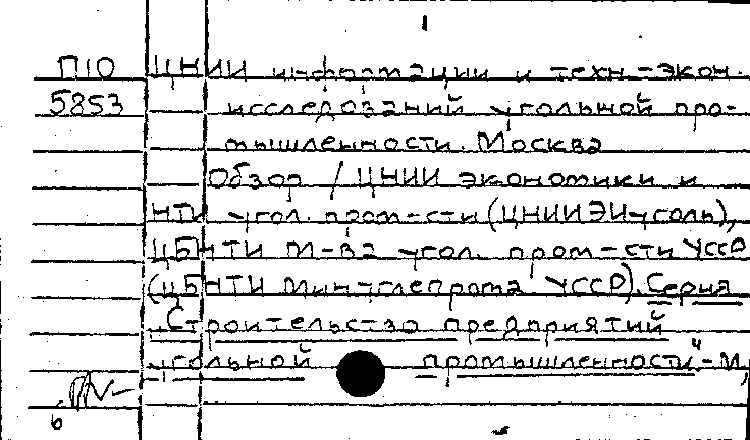 П10 ЦНИИ информации и техн.-экон.
5853 исследований угольной про-
мышленности. Москва
Обзор / ЦНИИ экономики и
НТИ угол. пром-сти (ЦНИИЭИуголь),
ЦБНТИ М-ва угол. пром-сти УССР
(ЦБНТИ Минуглепрома УССР). Серия
"Строительство предприятий
угольной промышленности".-М,
6